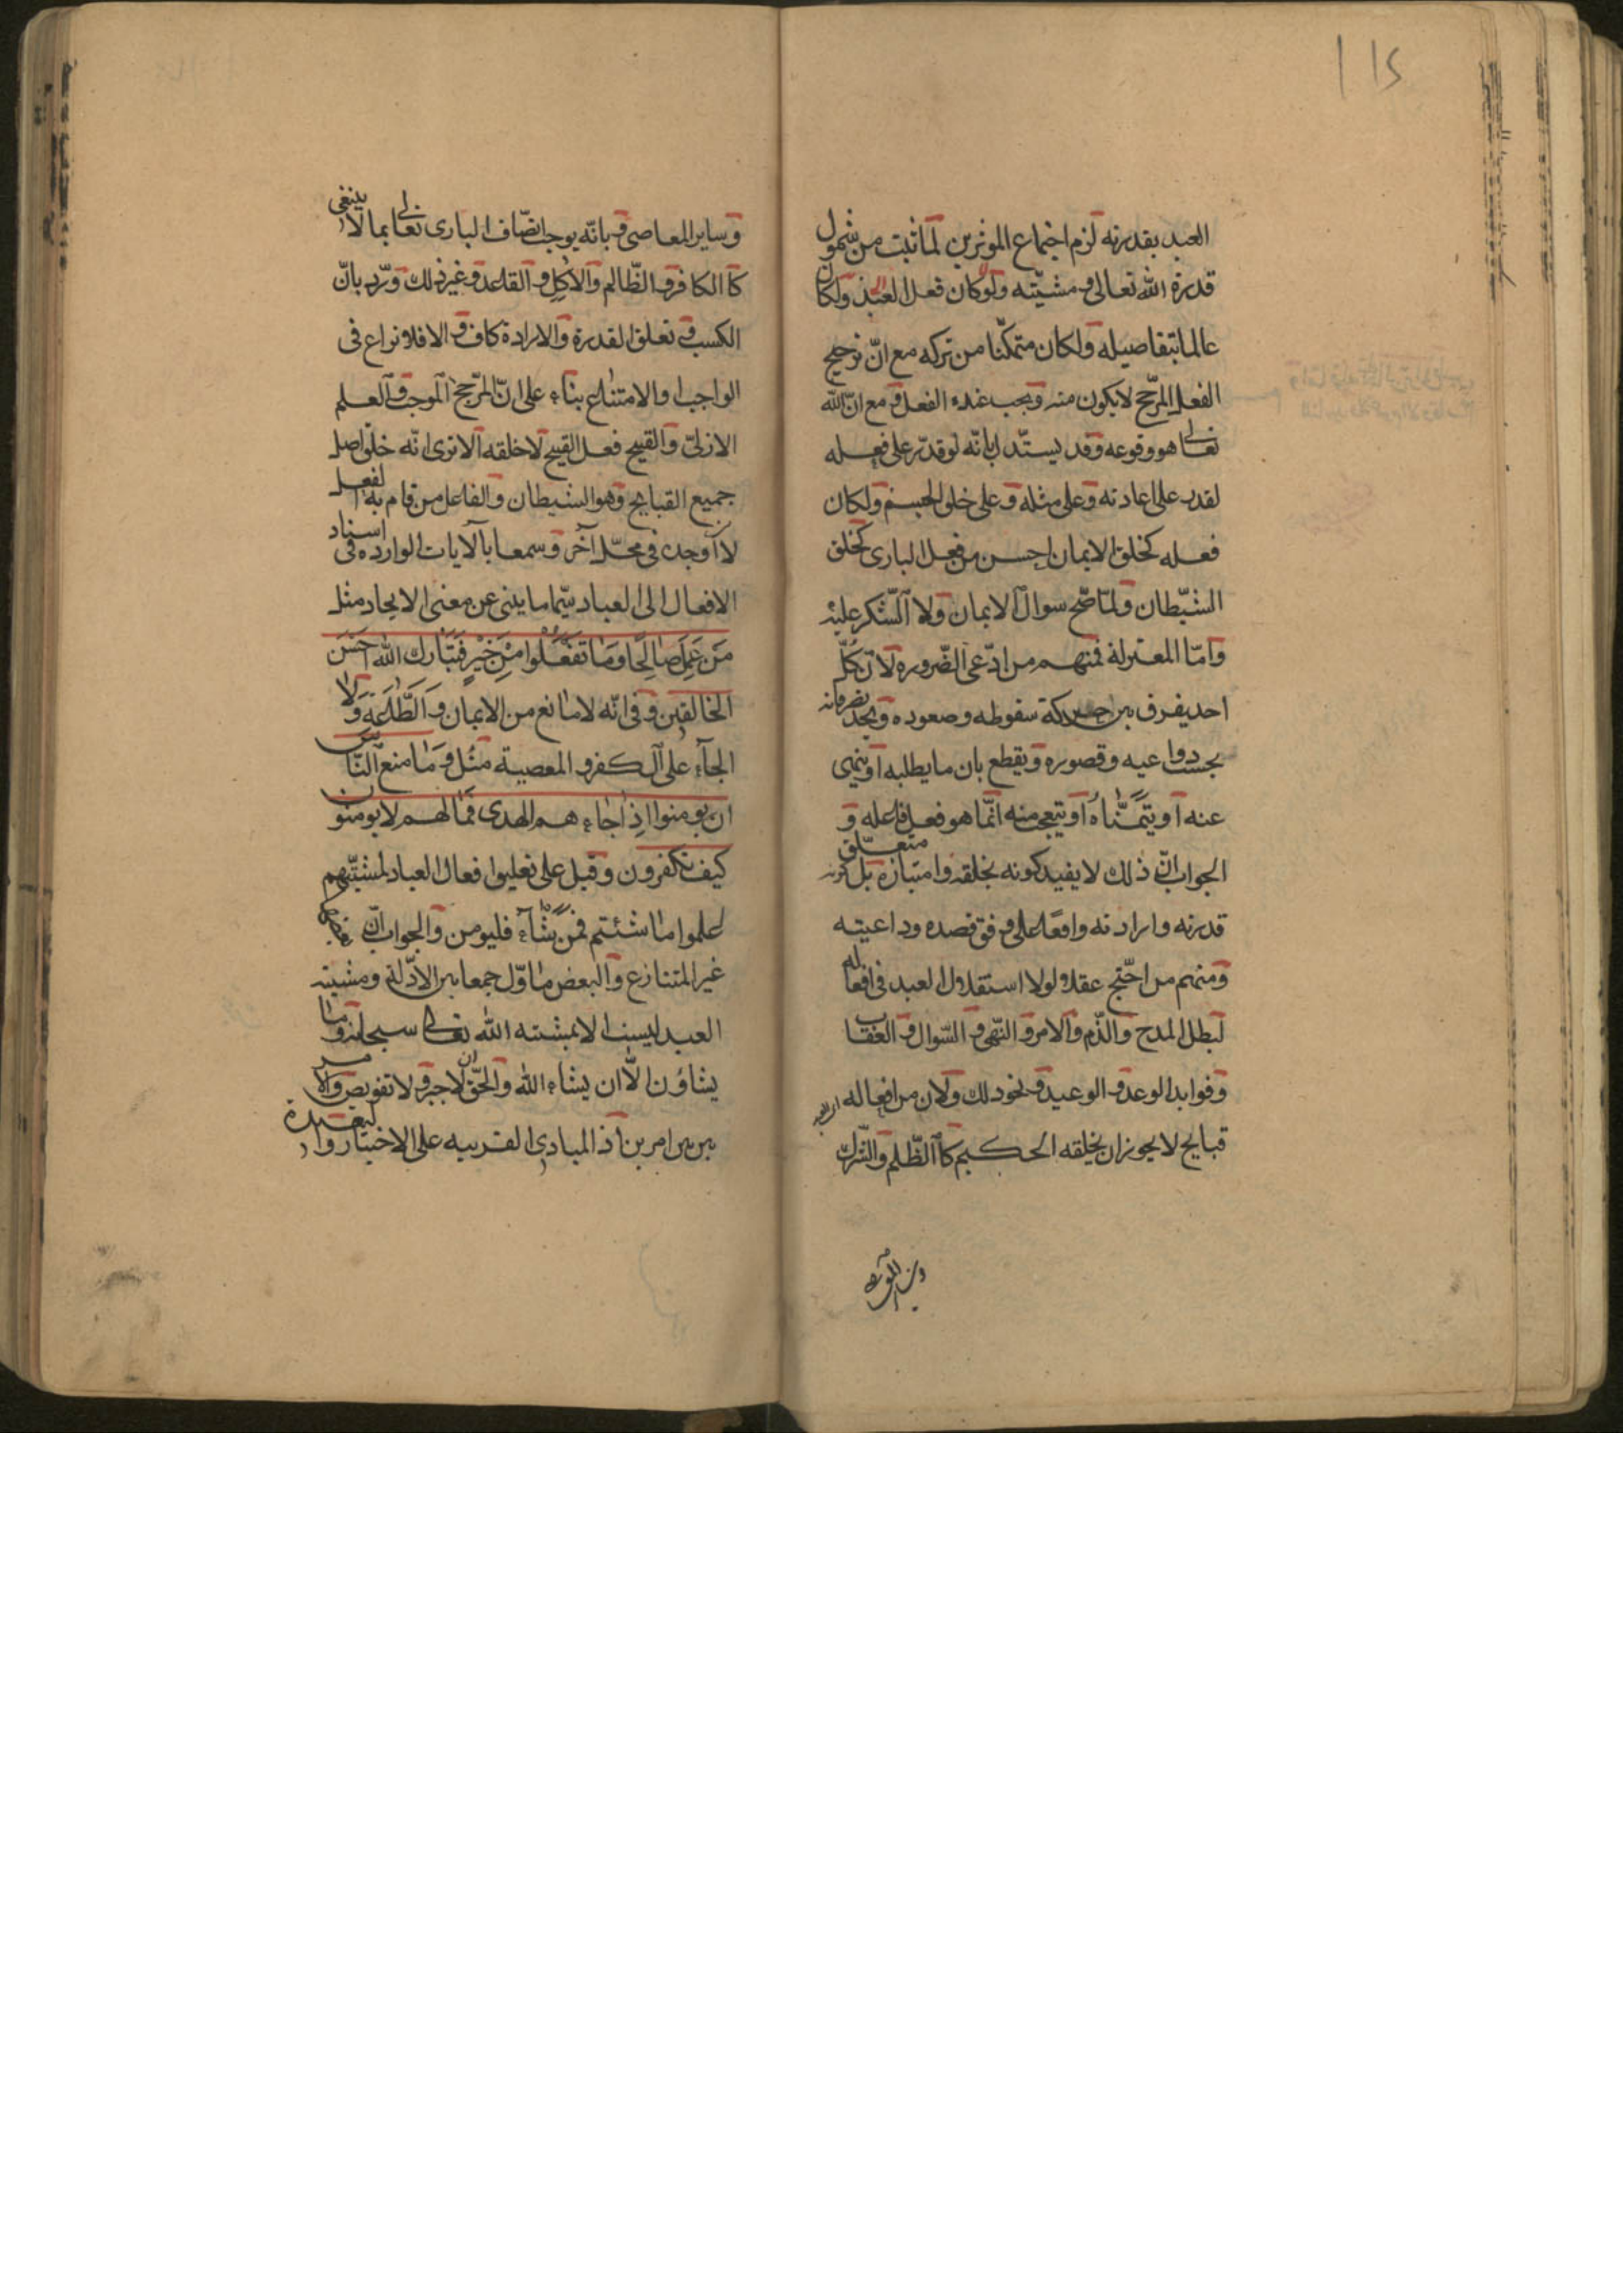 العبد بقدرته لزم اجتماع الموثرين لما ثبت من شمول
قدرة الله تعالى ومشيّته ولو كان فعل العبد ولكان
عالما بتفاصيله ولكان متمكّنا من تركه مع انّ ترجيح
الفعل المرّجح لا يكون منه ويجب عنده الفعل ومع انّ الله
تعالى هو وقوعه وقد يستّدل بانّه لو قدّر على فعله
لقدر على اعادته وعلى مثله وعلى خلق الجسم ولكان
فعله كخلق الايمان احسن من فعل البارى كخلق
الشّيطان ولمّا صّح سوال الايمان ولا الّشكر عليه
وامّا المعتزلة فمنهم من ادّعى الضّروره لانّ كلّ
احد يفرق بين حركة سقوطه وصعوده ويجد
بحسب دواعيه وقصوره ويقطع بان ما يطلبه او ينهى
عنه او يتمنّاه او يتعجب منه انّما هو فعل فاعله و
الجواب انّ ذلك لا يفيد كونه بخلقه وامتيازه بل كونه متعلّق
قدرته وارادته واقعًا على وفق قصده وداعيته
ومنهم من احّتج عقلا ولولا استقلال العبد فى افعاله
لبطل المدح والذّم والامر والنّهى والسّوال والعقاب
وفوايد الوعد والوعيد ونحو ذلك ولان من افعاله
قبايح لا يجوز ان يخلقه الحكيم كا الظّلم والشّرك
وساير المعاصى وبانّه يوجب اتّصاف البارى تعالى بما لا ينبغى
كا الكافر والظّالم والاكل والقاعد وغير ذلك وردّ بانّ
الكسب فى تعلق القدرة والارادة كاف والا فلا نزاع فى
الواجب والامتناع بناء على انّ المرّجح الموجب والعلم
الازلىّ والقبيح فعل القبيح لا خلقه الا ترى انّه خلق اصل
جميع القبايح وهو الشيطان والفاعل من قام به الفعل
لا اوجد فى محّل آخر وسمعا با الايات الوارده فى اسناد
الافعال الى العباد سيّما ما ينبى عن معنى الايجاد مثل
مَن عَمِلَ صَالِحًا وَمَا تَفعَلُوا مِنْ خَيْرٍ فَتَبَارَكَ الله احسَن
الخالقين وفى انّه لا مانع من الايمان و الطّاعة ولا
الجاء على الكفر و المعصية مثل وما منع النّاس
ان يومنوا اذ جاءهم الهدى فما لهم لا يومنون
كيف تكفرون وقيل على تعليق افعال العباد لمشيّتهم
اعملوا ما شئتم فمن شاء فليومن والجواب انّ
غير المتنازع والبعض ماوّل جمعا بين الادّلة ومشيته
العبد ليست الا بمشيته الله تعالى سبحانه وما
يشاؤن الّا ان يشاء الله والحّق ان لا جبر ولا تفويض والامر
بين بين امرين اذ المبادى القريبه على الاختيار و البعيدة